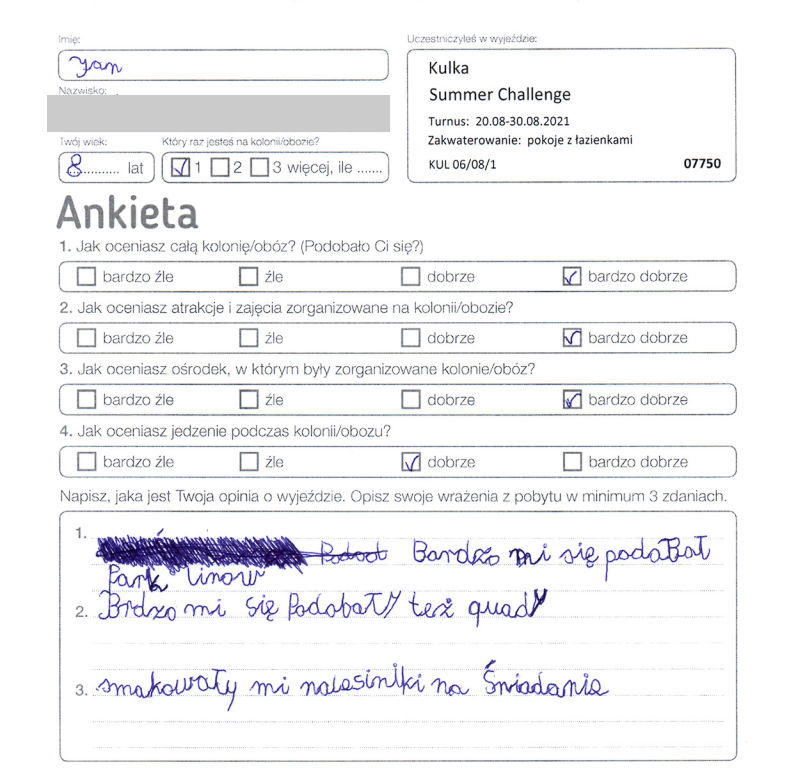 Imię:
Yan
Nazwisko:
Twój wiek:
Który raz jesteś na kolonii/obozie?
8.......... lat
1 2 3 więcej, ile .......
Uczestniczyłeś w wyjeździe:
Kulka
Summer Challenge
Turnus: 20.08-30.08.2021
Zakwaterowanie: pokoje z łazienkami
KUL 06/08/1 07750
Ankieta
1. Jak oceniasz całą kolonię/obóz? (Podobało Ci się?)
bardzo źle źle dobrze bardzo dobrze
2. Jak oceniasz atrakcje i zajęcia zorganizowane na kolonii/obozie?
bardzo źle źle dobrze bardzo dobrze
3. Jak oceniasz ośrodek, w którym były zorganizowane kolonie/obóz?
bardzo źle źle dobrze bardzo dobrze
4. Jak oceniasz jedzenie podczas kolonii/obozu?
bardzo źle źle dobrze bardzo dobrze
Napisz, jaka jest Twoja opinia o wyjeździe. Opisz swoje wrażenia z pobytu w minimum 3 zdaniach.
1. Bardzo mi się podobał
Park linowy
2. Brdzo mi się Podobały też quady
3. smakowały mi nalesiniki na Śniadanie